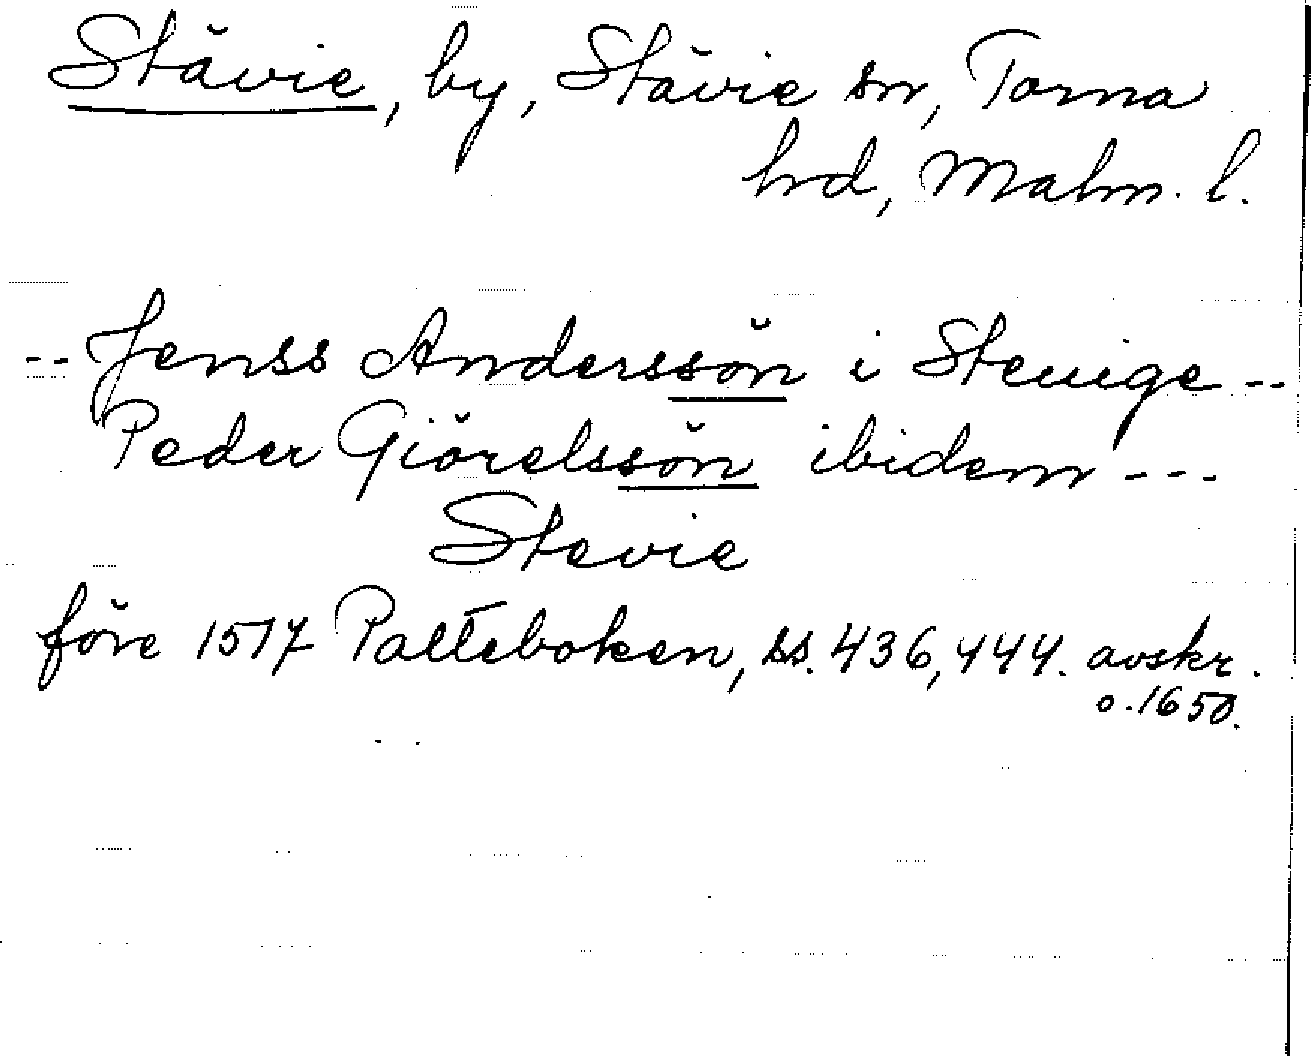 Stävie, by, Stävie sn, Torna
hrd, Malm. l.
-- Jenss Anderssön i Steuige --
Peder Giörelssön ibidem ---
Stevie
före 1517 Palteboken, ss. 436, 444. avskr.
o. 1650.